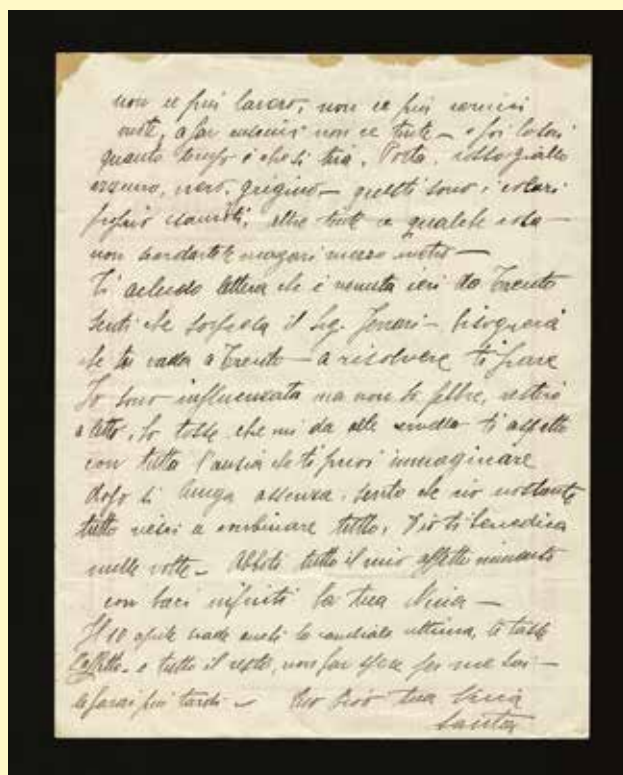 non ce più lavoro, non ce più camici
note, a far cuscini non ce tinte – e poi lo sai
quanto tempo è che si tria. Porta, rosso giallo
azzurro, nero, grigino – questi sono i colori
proprio esauriti, altre tinte a qualche cosa –
non scordartele magari mezzo metro –
Ti acludo lettera che è venuta ieri da Trento
senti che sorpresa il Sig. Jenari – bisognerà
che tu vada a Trento – a risolvere ti pare
Io sono influenzata ma non ho febbre, resterò
a letto, ho tosse che mi da alle cervella ti aspetto
con tutta l'ansia che ti puoi immaginare
dopo sì lunga assenza. sento che nonostante
tutto riesci a combinare tutto. Dio ti benedica
mille volte – Abbiti tutto il mio affetto
con baci infiniti la tua Nina –
Il 10 aprile scade anche la cambiale ultima, le tasse
l'affitto – e tutto il resto, non far spese per me
le farai più tardi – tua Nina